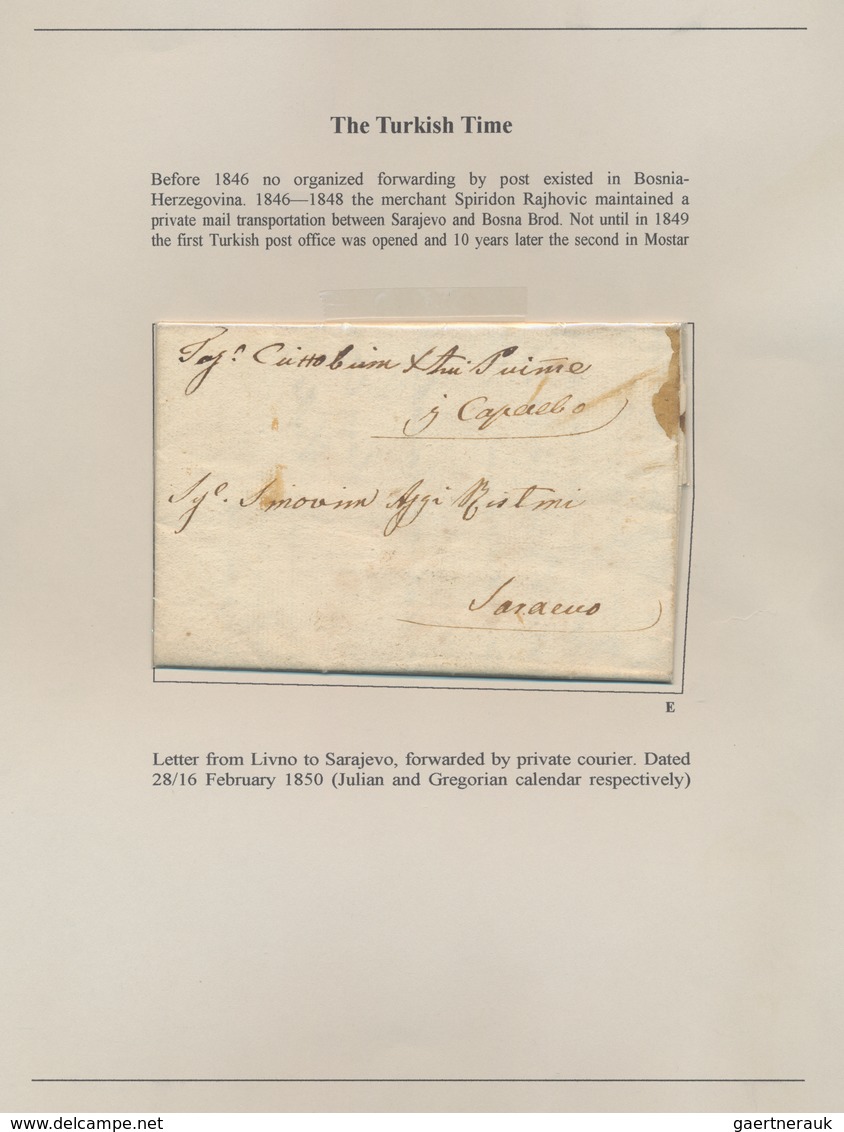 The Turkish Time
Before 1846 no organized forwarding by post existed in Bosnia-
Herzegovina. 1846—1848 the merchant Spiridon Rajhovic maintained a
private mail transportation between Sarajevo and Bosna Brod. Not until in 1849
the first Turkish post office was opened and 10 years later the second in Mostar
Sig.
Saraevo
E
Letter from Livno to Sarajevo, forwarded by private courier. Dated
28/16 February 1850 (Julian and Gregorian calendar respectively)
www.delcampe.net
gaertnerauk